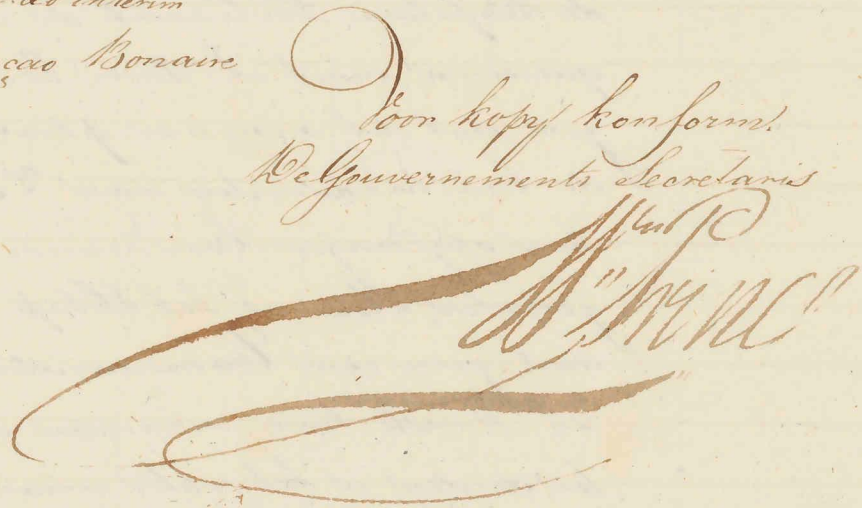 ad interim
cao Bonaire
Voor kopy konform.
De Gouvernements Secretaris
Wm Prince